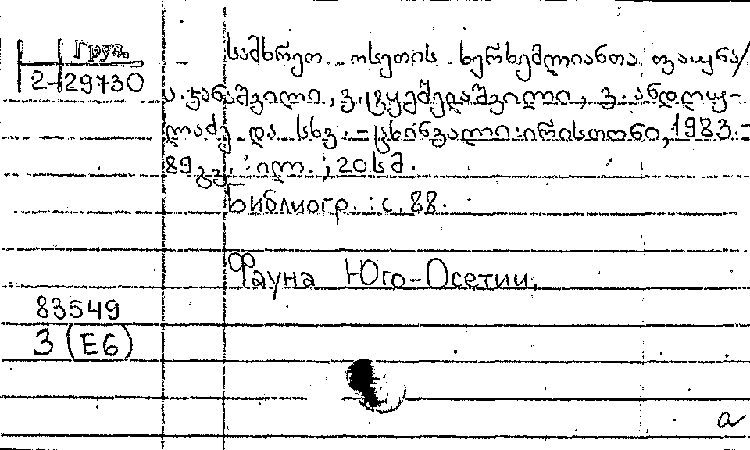 Груз.
2-29730
სამხრეთ ოსეთის ხერხემლიანთა ფაუნა/
ა. ჯანაშვილი, გ. ტყემშელაშვილი, გ. ანდღუ-
ლაძე და სხვ. - ცხინვალი: ირისთონი, 1983. -
89 გვ. : ილ. ; 20 სმ.
Библиогр. : с. 88.
Фауна Юго-Осетии.
83549
З (Е6)
а